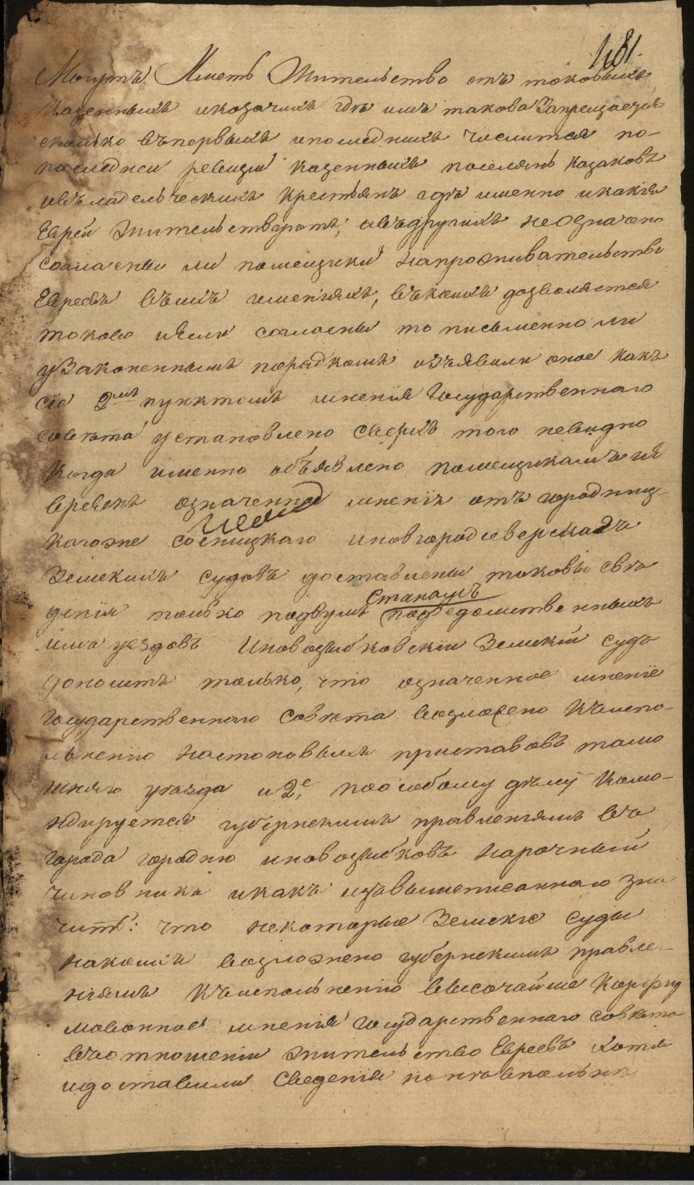 481.
Могутъ Иметь Жительство отъ таковыхъ
казенныхъ иказачих где имъ такова Запрещается
сколько въпервыхъ ипоследнихъ числится по-
последней ревизіи казенныхъ поселянъ казаковъ
ивладельческихъ крестьянъ где именно икакія
Евреи жительствуютъ, авъдругихъ неозначено
согласны ли помещики напроживательство
Евреевъ въихъ имѣніяхъ, въкоихъ дозволяется
таково иесли согласны то письменно ли
узаконеннымъ порядкомъ изъявили оное какъ
сіе 2мъ пунктомъ мненія Государственнаго
совѣта установлено сверхъ того невидно
когда именно объявлено помещикамъ и
евреямъ означенное мненіе отъ городниц-
кагоже сосницкаго иновгородсеверскаго
Земскихъ судовъ доставлены таковы све
денія только подвумъ Станамъ подведомственныхъ
имъ уездовъ Иновозыбковскій Земскій судъ
доноситъ только, что означенное мненіе
Государственнаго Совѣта возложено къиспо-
лненію настановыхъ приставовъ тамо
шняго уезда и 2е, поособому делу кома-
ндируется губернскимъ правленіемъ въ
города городню иновозыбковъ нарочный
чиновникъ икакъ изъвышеписаннаго зна
читъ: что некоторые Земскіе суды
накоихъ возложено губернскимъ правле-
ніемъ къисполненію высочайше конфир
мованное мненія Государственнаго совѣта
вътношеніи жительство Евреевъ хотя
идоставили Сведенія но